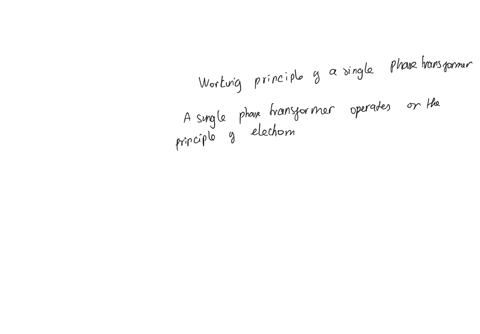 Working principle of a single phase transformer
A single phase transformer operates on the
principle of electrom